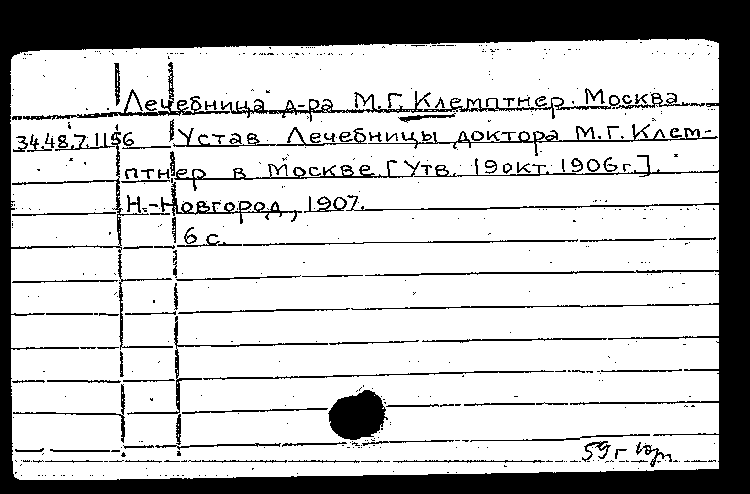 Лечебница д-ра М.Г. Клемптнер. Москва.
34.48.7.1156 Устав Лечебницы доктора М.Г. Клем-
птнер в Москве [Утв. 19 окт. 1906 г.].
Н.-Новгород, 1907.
6 с.
59 г